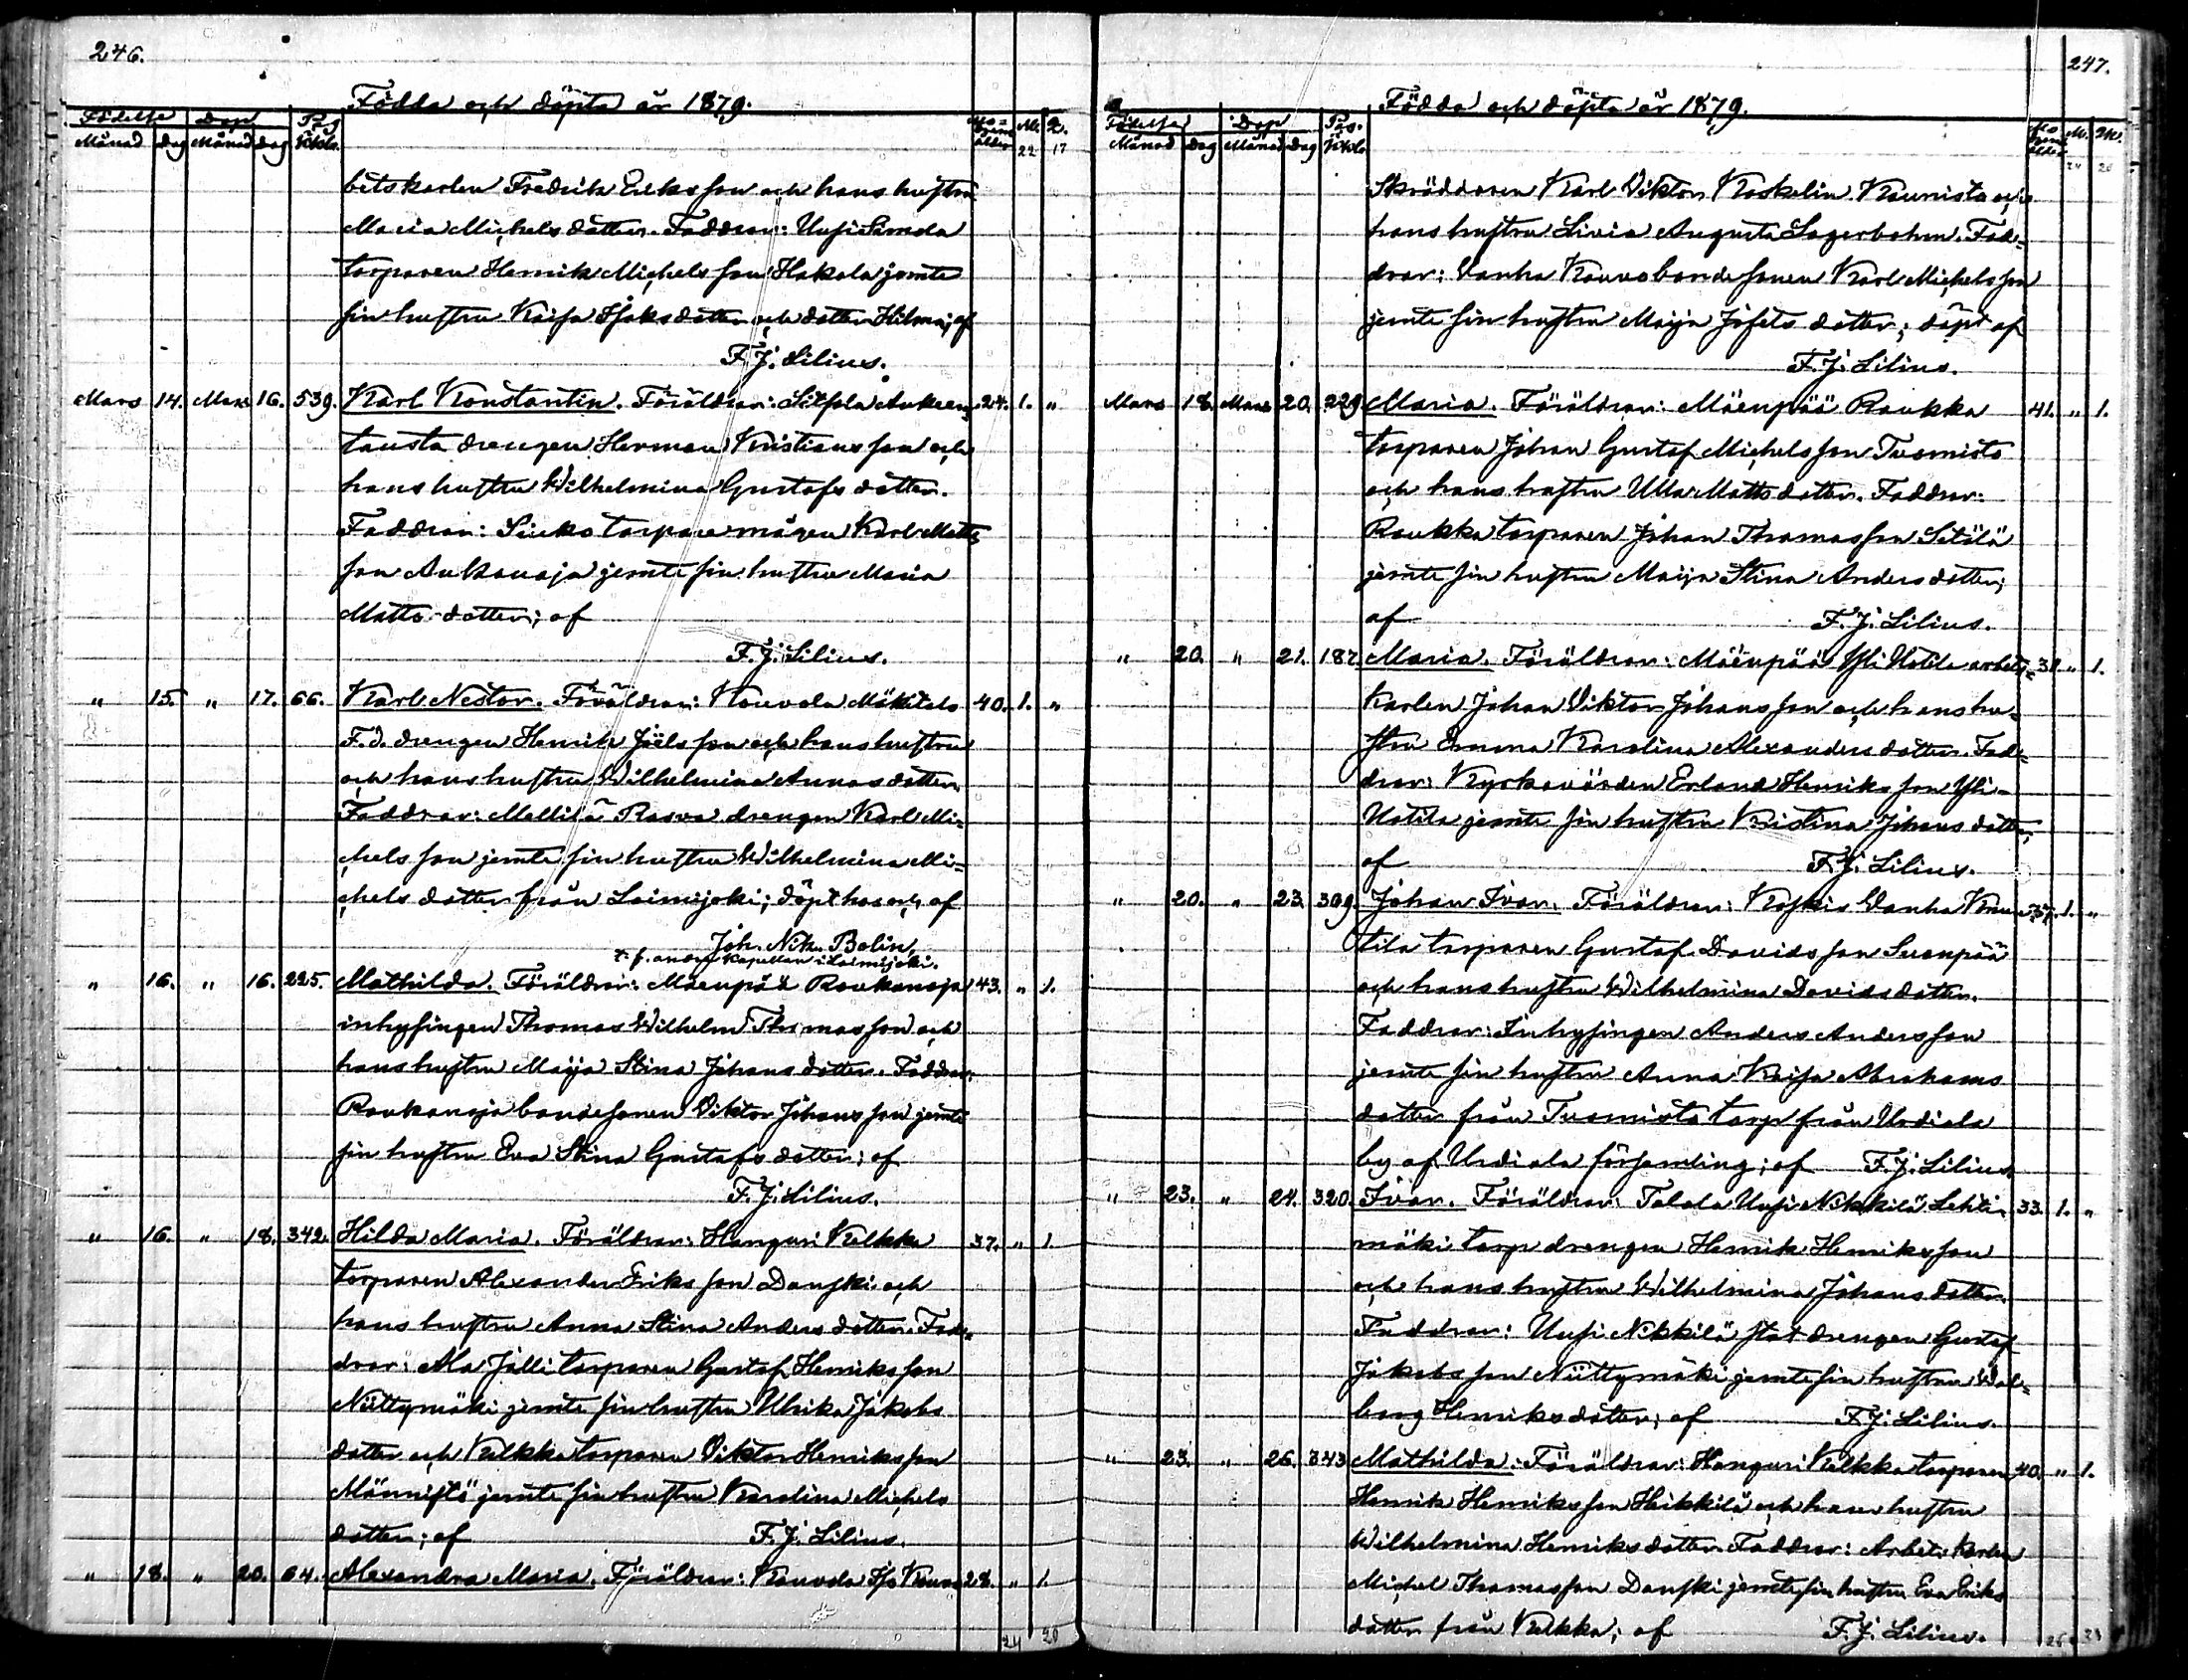 246.
Födda och döpta år 1879.
Födelse Dop Pag. Moderns ålder M. Q.
Månad Dag Månad Dag 22 17
betskarlen Fredrik Eriksson och hans hustru
Maria Michelsdotter. Faddrar: Uusi Simola
torparen Henrik Michelsson Hakola jemte
sin hustru Kaisa Isaksdotter och dotter Hilma; af
F. J. Lilius.
Mars 14. Mars 16. 539. Karl Konstantin. Föräldrar: 24. 1. "
tausta drengen Herman Kristiansson och
hans hustru Wilhelmina Gustafsdotter.
Faddrar: torparemågen Karl Matts
son Ankanoja jemte sin hustru Maria
Mattsdotter; af
F. J. Lilius.
" 15. " 17. 66. Karl Nestor. Föräldrar: Kouvola Mäkitalo 40. 1. "
F. d. drengen Henrik Joelsson och hans hustru
och hans hustru Wilhelmina Annasdotter.
Faddrar: Mellilä Rasva drengen Karl Mi=
chelsson jemte sin hustru Wilhelmina Mi=
chelsdotter från Loimijoki; döpt hos och af
Joh. Nik. Bolin,
t. f. andre kapellan i Loimijoki.
" 16. " 16. 225. Mathilda. Föräldrar: Mäenpää Raukanoja 43. " 1.
inhysingen Thomas Wilhelm Thomasson och
hans hustru Maija Stina Johansdotter. Faddrar:
Raukanoja bondesonen Viktor Johansson jemte
sin hustru Eva Stina Gustafsdotter; af
F. J. Lilius.
" 16. " 18. 342. Hilda Maria. Föräldrar: Honguri Kulkka 37. " 1.
torparen Alexander Eriksson Danski och
hans hustru Anna Stina Andersdotter. Fad=
drar: Ala Jålli torparen Gustaf Henriksson
Niittymäki jemte sin hustru Ulrika Jakobs
dotter och Kulkka torparen Viktor Henriksson
Männistö jemte sin hustru Karolina Michels
dotter; af F. J. Lilius.
" 18. " 20. 64. Alexandra Maria. Föräldrar: Kouvola Iso Kouvo 28. " 1.
24 20
247.
Födda och döpta år 1879.
Födelse Dop Pag. Moderns ålder M. Qv.
Månad Dag Månad Dag 24 20
Skräddaren Karl Viktor Koskelin Kaunisto och
hans hustru Livia Augusta Lagerbohm. Fad=
drar: Vanha Kouvo bondesonen Karl Michelsson
jemte sin hustru Maija Josefsdotter; döpt af
F. J. Lilius.
Mars 18. Mars 20. 229. Maria. Föräldrar: Mäenpää Raukka 41. " 1.
torparen Johan Gustaf Michelsson Tuomisto
och hans hustru Ulla Mattsdotter. Faddrar:
Raukka torparen Johan Thomasson Sitilä
jemte sin hustru Maija Stina Andersdotter;
af F. J. Lilius.
" 20. " 21. 187. Maria. Föräldrar: Mäenpää Yli Uotila arbets= 31. " 1.
karlen Johan Viktor Johansson och hans hu=
stru Emma Karolina Alexandersdotter. Fad=
drar: Kyrkovärden Erland Henriksson Yli=
Uotila jemte sin hustru Kristina Johansdotter;
af F. J. Lilius.
" 20. " 23. 309. Johan Ivar. Föräldrar: Koskis Vanha 37. 1. "
tila torparen Gustaf Davidsson Suonpää
och hans hustru Wilhelmina Davidsdotter.
Faddrar: Inhysingen Anders Andersson
jemte sin hustru Anna Kaisa Abrahams
dotter från Tuomisto torp från Urdiala
by af Urdiala församling; af F. J. Lilius.
" 23. " 24. 320. Ivar. Föräldrar: Talala Uusi Nikkilä Lehti= 33. 1. "
mäki torp drengen Henrik Henriksson
och hans hustru Wilhelmina Johansdotter.
Faddrar: Uusi Nikkilä statdrengen Gustaf
Jakobsson Niittymäki jemte sin hustru Wal=
borg Henriksdotter; af F. J. Lilius.
" 23. " 26. 343. Mathilda. Föräldrar: Honguri Kulkka torparen 40. " 1.
Henrik Henriksson Heikkilä och hans hustru
Wilhelmina Henriksdotter. Faddrar: Arbetskarlen
Michel Thomasson Danski jemte sin hustru Eva Eriks
dotter från Kulkka; af F. J. Lilius.